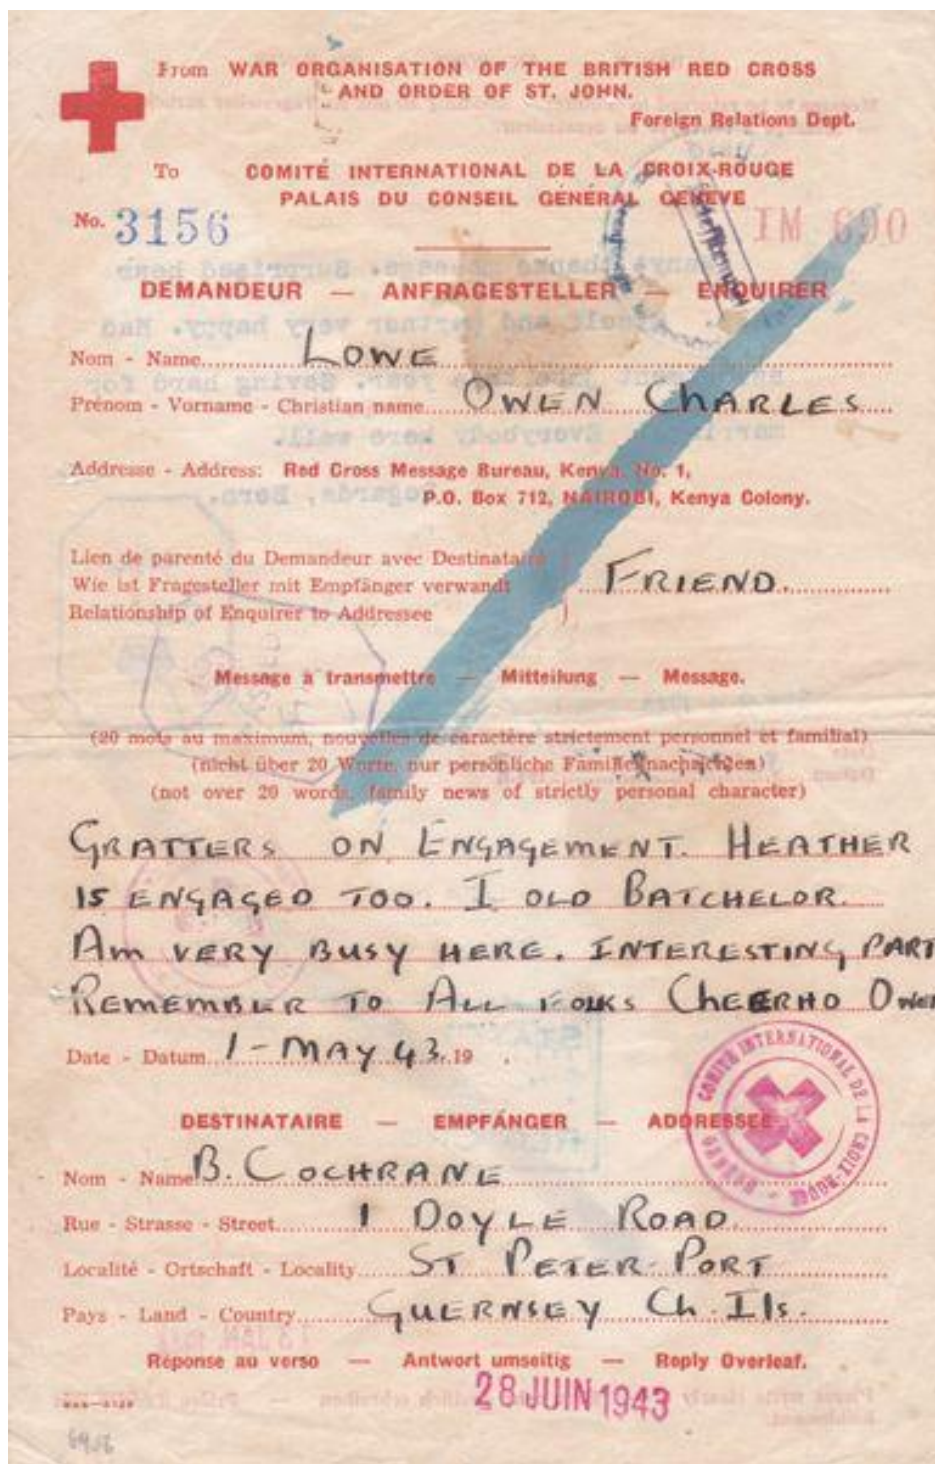 From WAR ORGANISATION OF THE BRITISH RED CROSS
AND ORDER OF ST. JOHN.
Foreign Relations Dept.
To COMITÉ INTERNATIONAL DE LA CROIX-ROUGE
PALAIS DU CONSEIL GÉNÉRAL GENÈVE
No. 3156
IM 690
DEMANDEUR — ANFRAGESTELLER — ENQUIRER
Nom - Name LOWE
Prénom - Vorname - Christian name OWEN CHARLES
Addresse - Address: Red Cross Message Bureau, Kenya, No. 1,
P.O. Box 712, NAIROBI, Kenya Colony.
Lien de parenté du Demandeur avec Destinataire
Wie ist Fragesteller mit Empfänger verwandt
Relationship of Enquirer to Addressee
FRIEND.
Message à transmettre — Mitteilung — Message.
(20 mots au maximum, nouvelles de caractère strictement personnel et familial)
(nicht über 20 Worte, nur persönliche Familiennachrichten)
(not over 20 words, family news of strictly personal character)
GRATTERS ON ENGAGEMENT. HEATHER
IS ENGAGED TOO. I OLD BATCHELOR.
AM VERY BUSY HERE. INTERESTING PART
REMEMBER TO ALL FOLKS CHEERHO OWEN
Date - Datum 1-MAY 43. 19 .
COMITÉ INTERNATIONAL DE LA CROIX-ROUGE
DESTINATAIRE — EMPFÄNGER — ADDRESSEE
Nom - Name B. COCHRANE
Rue - Strasse - Street 1 DOYLE ROAD.
Localité - Ortschaft - Locality ST PETER PORT
Pays - Land - Country GUERNSEY Ch. Ils.
Réponse au verso — Antwort umseitig — Reply Overleaf.
28 JUIN 1943